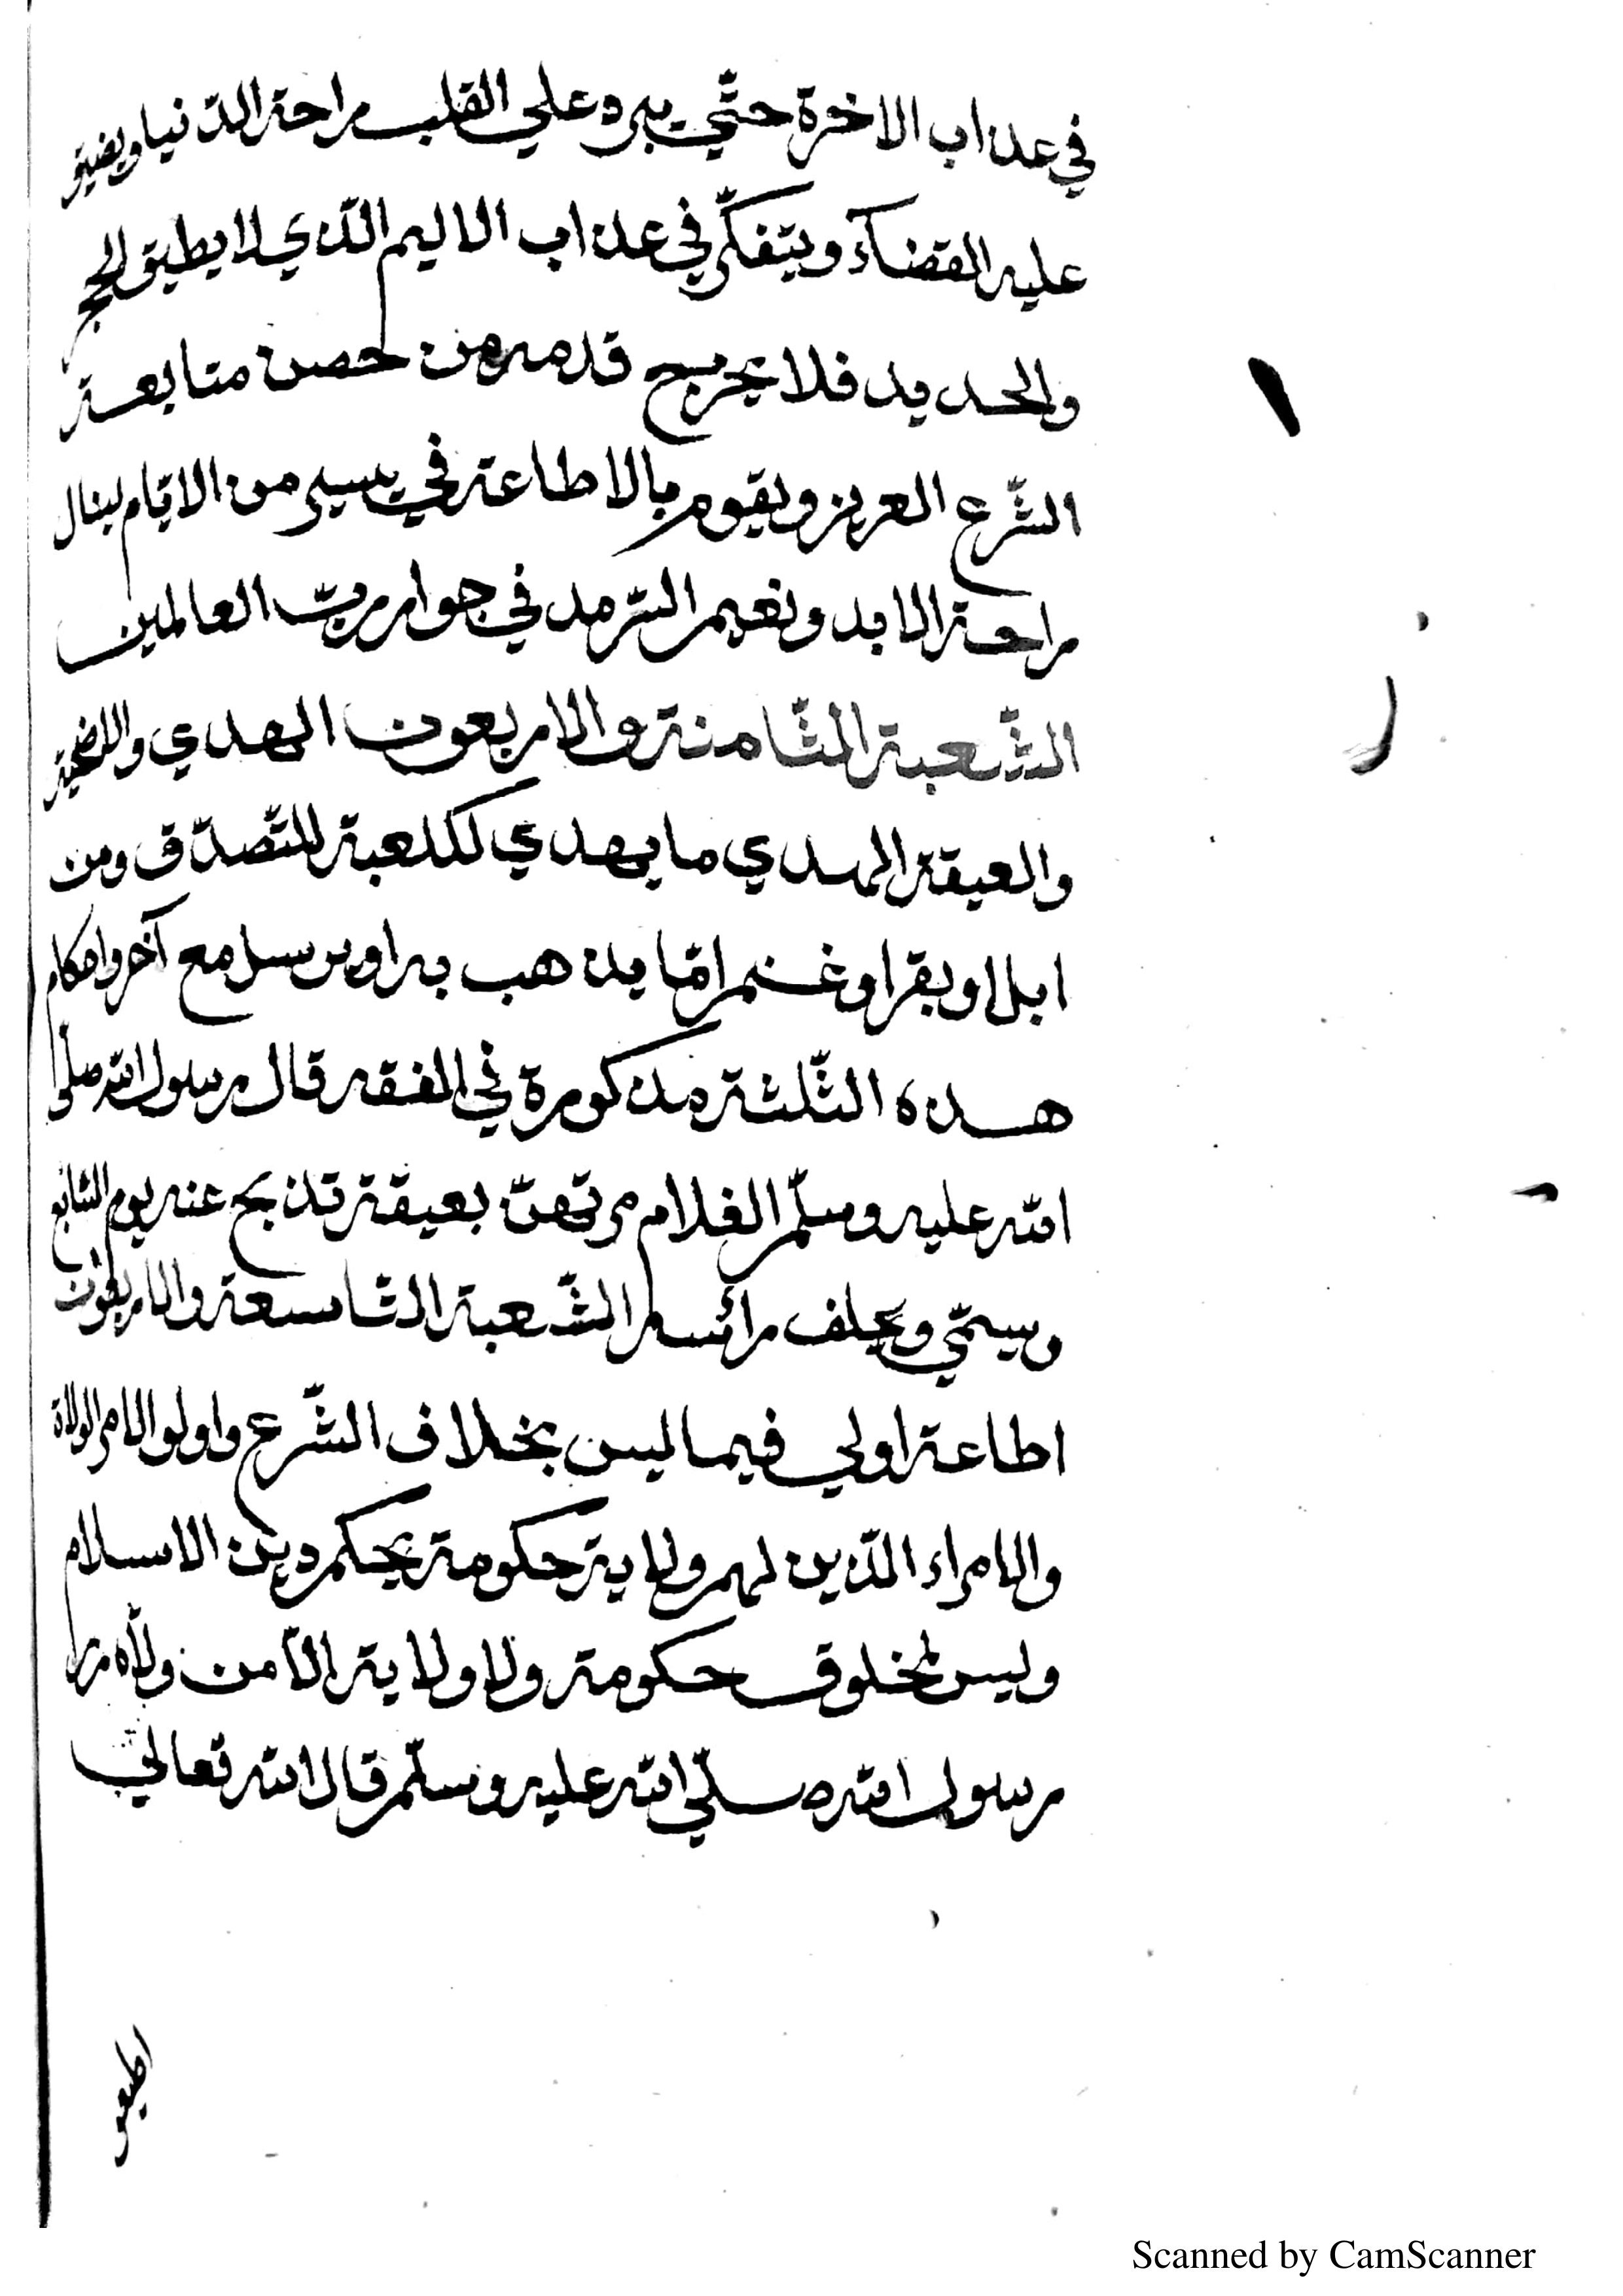 في عذاب الاخرة حتّي يبرد علي القلب راحة الدّنيا ويضيق
عليه القضآء ويتفكّر في عذاب الاليم الّذي لا يطيق الحجر
والحديد فلا يخرج قدمه من حصن متابعة
الشّرع العزيز ويقوم بالاطاعة في يسير من الايّام لينال
راحة الابد ونعيم السّرمد في جوار ربّ العالمين
الشّعبة الثّامنة والاربعون الهدي والاضحية
والعيقة الهدي ما يهدي لكلعبة للتّصدّق ومن
ابل او بقر او غنم امّا يذهب به او يرسل مع آخر واحكام
هذه الثّلثة مذكورة في الفقه قال رسول الله صلّي
الله عليه وسلّم الغلام مرتهنّ بعيقة تذبح عنه يوم السّابع
ويسمّي ويحلف رأسه الشّعبة التّاسعة والاربعون
اطاعة اولي فيما ليس بخلاف الشّرع واولو الامر الولاة
والامراء الّذين لهم ولاية حكومة بحكم دين الاسلام
وليس لمخلوق حكومة ولا ولاية الّا من ولّاه
رسول الله صلّي الله عليه وسلّم قال الله تعالي
اطيعو
Scanned by CamScanner